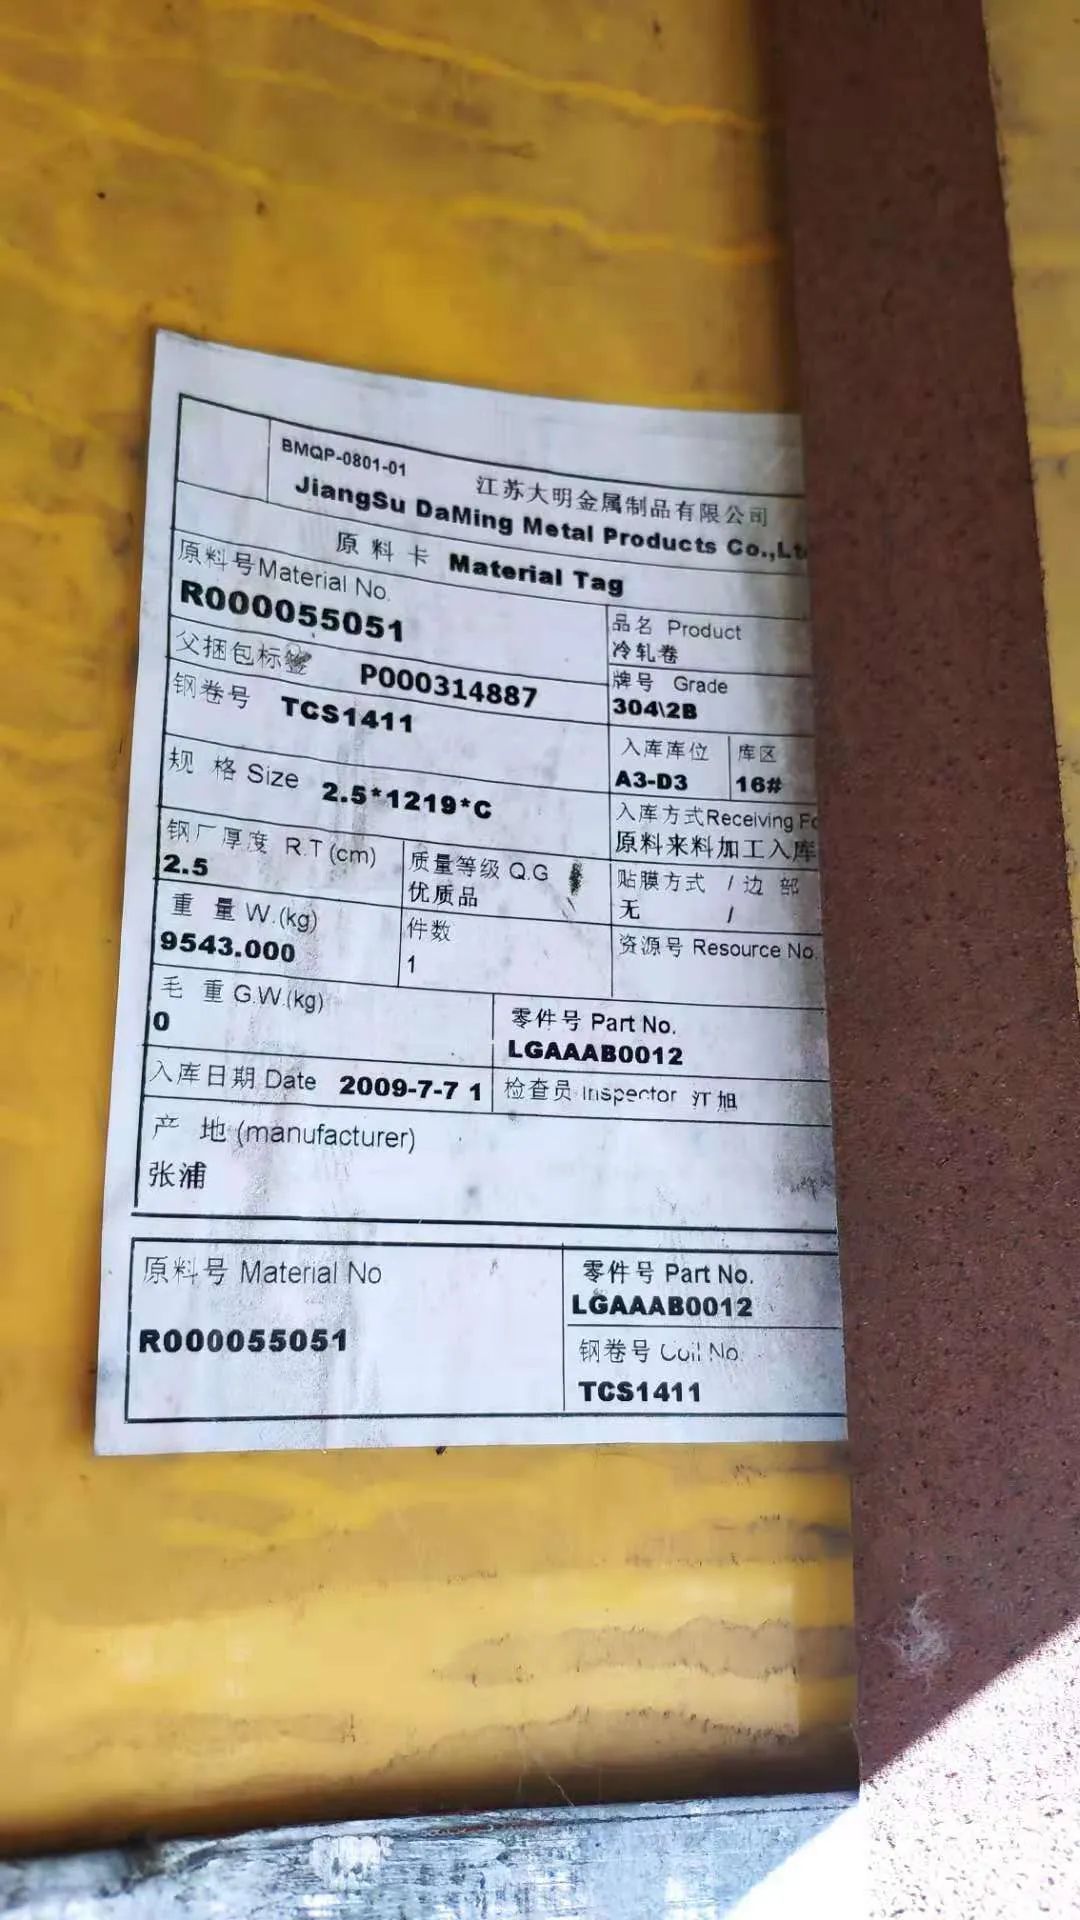 BMQP-0801-01
江苏大明金属制品有限公司
JiangSu DaMing Metal Products Co.,Lt
原 料 卡 Material Tag
原料号Material No.
R000055051
品名 Product
冷轧卷
父捆包标签 P000314887
牌号 Grade
304\2B
钢卷号 TCS1411
入库库位 库区
A3-D3 16#
规 格 Size 2.5*1219*C
入库方式Receiving Fo
原料来料加工入库
钢厂厚度 R.T(cm)
2.5
质量等级 Q.G
优质品
贴膜方式 / 边 部
无 /
重 量 W.(kg)
9543.000
件数
1
资源号 Resource No.
毛 重 G.W.(kg)
0
零件号 Part No.
LGAAAB0012
入库日期 Date 2009-7-7 1
检查员 Inspector 汪旭
产 地 (manufacturer)
张浦
原料号 Material No
R000055051
零件号 Part No.
LGAAAB0012
钢卷号 Coil No.
TCS1411